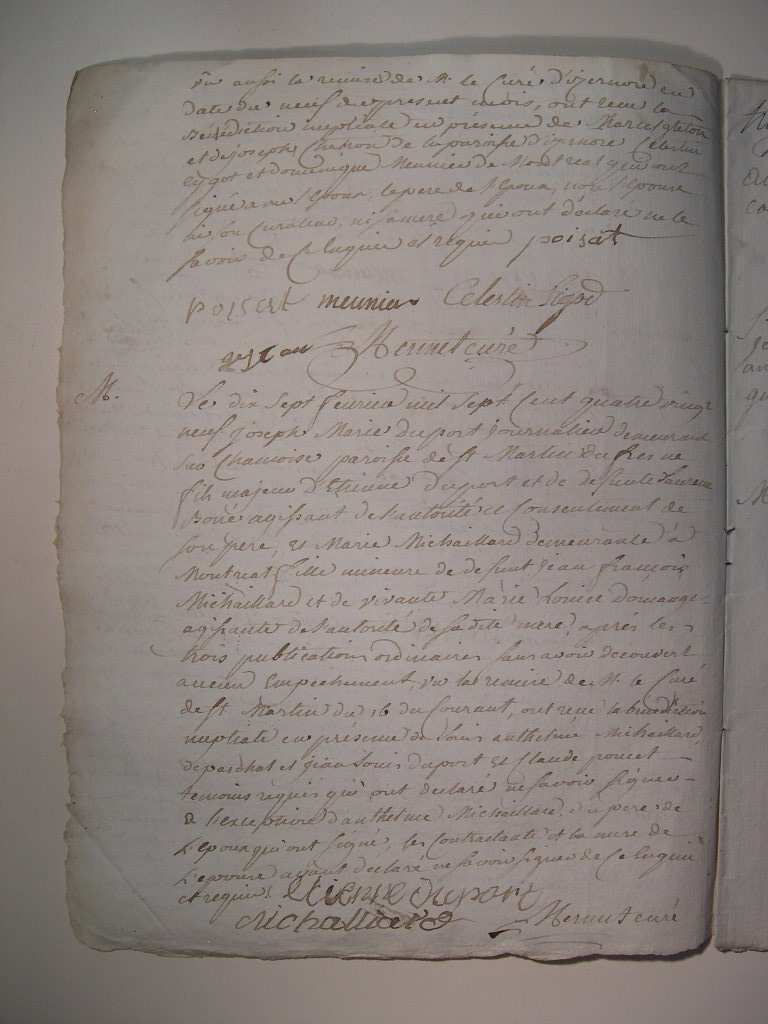 vu aussi la remise de M. le Curé d'izernore en
date du neuf de ce present mois, ont reçu la
Benediction nuptiale en présence de
et de joseph de la paroisse d'izernore Celestin
et dominique Meunier de Montreal qui ont
signé avec l'Epoux, le pere de l'Epoux, non l'Epouse
ni son Curateur, ni sa mere qui ont déclaré ne le
savoir de ce Enquis et requis poisat
poisat meunier Celestin
Hermet curé
M.
Le dix sept fevrier mil sept Cent quatre vingt
neuf joseph Marie duport journalier demeurant
sur Chamoise paroisse de St Martin du fresne
fils majeur d'Etienne duport et de defunte Laurence
agissant de l'autorité et Consentement de
son pere, et Marie Michaillard demeurante à
Montreal fille mineure de defunt jean françois
Michaillard et de vivante Marie Louise
agissante de l'autorité de sa dite mere, après les
trois publications ordinaires sans avoir decouvert
aucun Empechement, vu la remise de M. le Curé
de St Martin du 16 du Courant, ont reçu la benediction
nuptiale en présence de louis anthelme Michaillard,
et jean Louis duport et Claude poncet
temoins requis qui ont déclaré ne savoir signer
à l'exception d'anthelme Michaillard, du pere de
l'Epoux qui ont signé, les Contractants et la mere de
l'Epouse ayant declaré ne savoir signer de ce Enquis
et requis. etienne duport
Michalliard Hermet curé